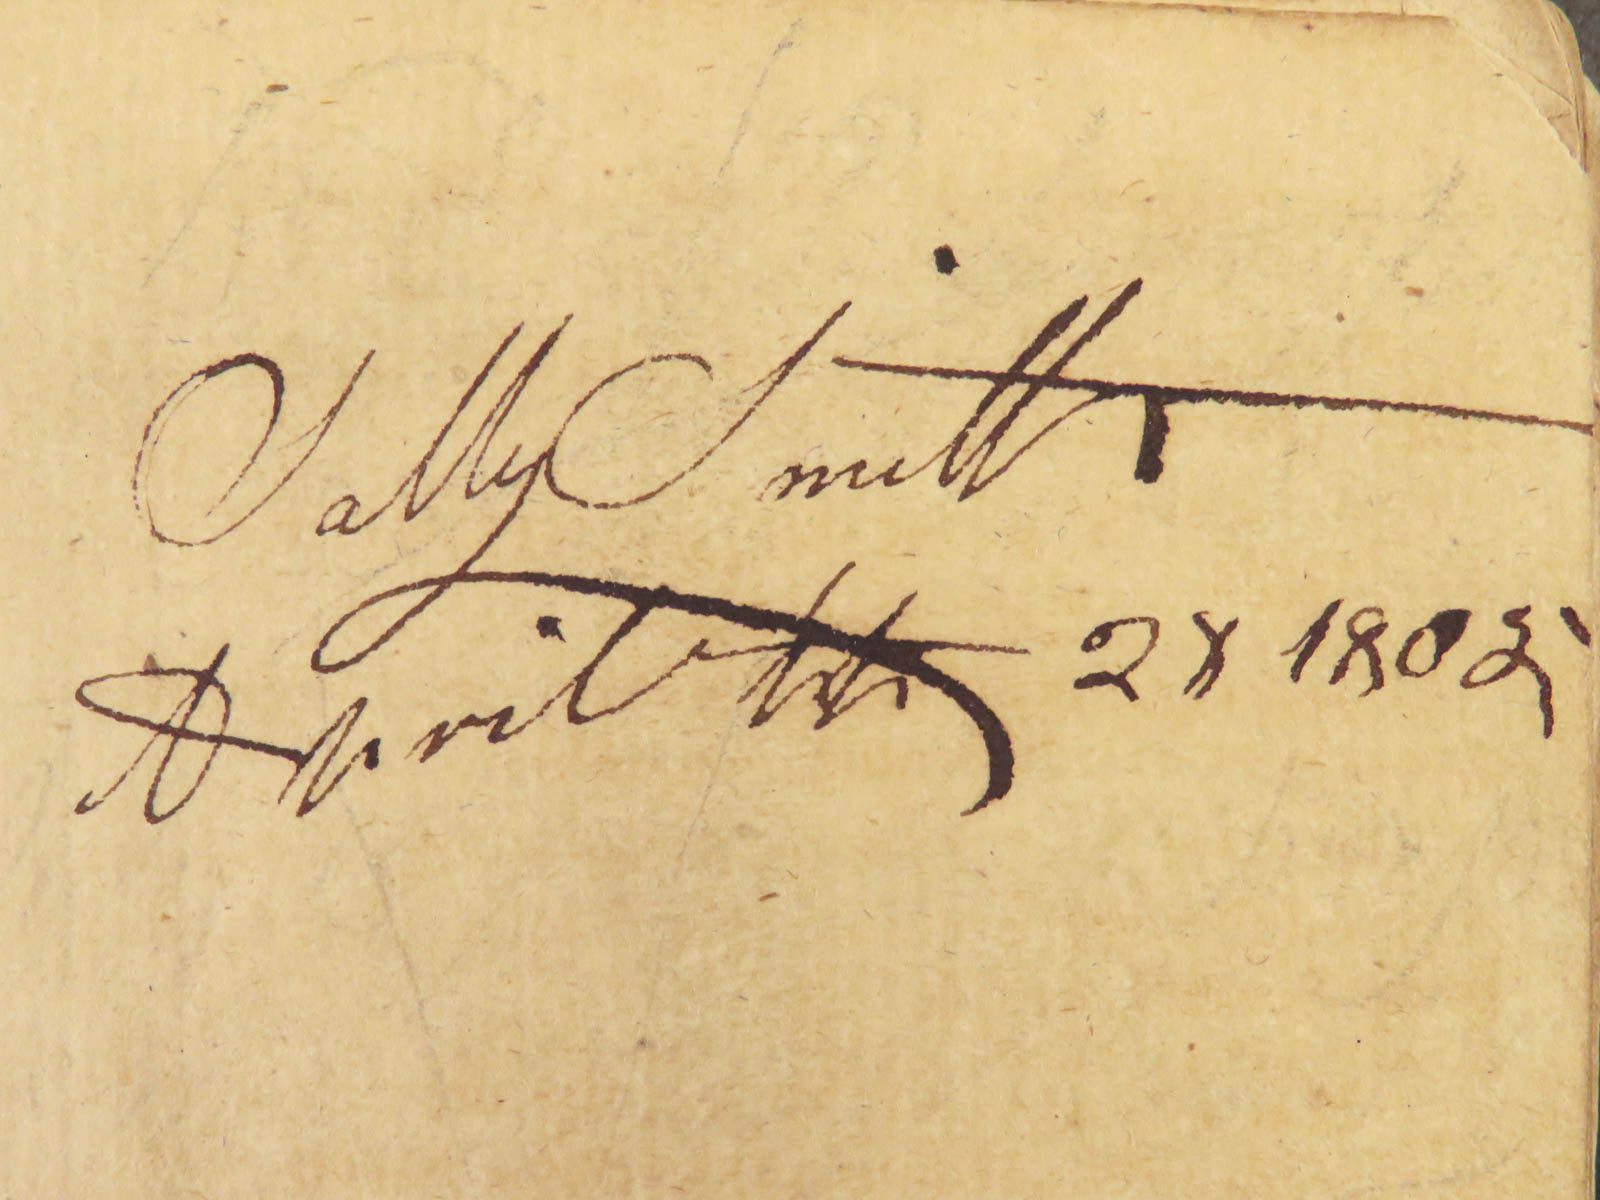 Sally Smith
April the 28 1802